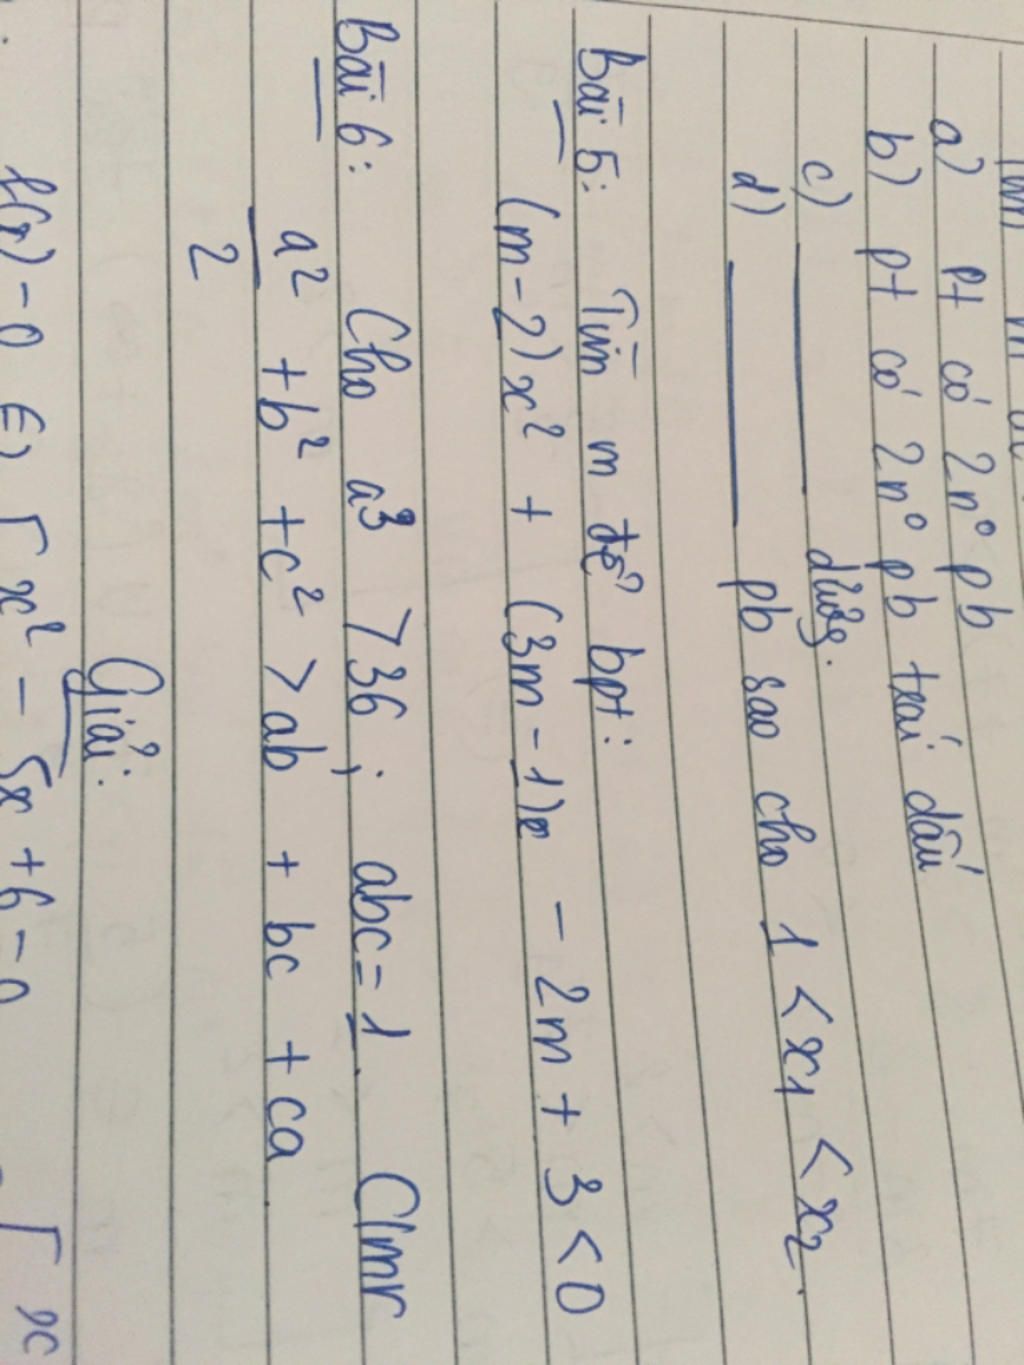 a) pt có 2 n° pb
b) pt có 2 n° pb trái dấu
c) ——— dương.
d) ——— pb sao cho 1 < x₁ < x₂.
Bài 5: Tìm m để bpt:
(m-2)x² + (3m-1)x - 2m + 3 < 0
Bài 6: Cho a³ > 36; abc = 1. Cmr
a²/2 + b² + c² > ab + bc + ca.
Giải:
x² - 5x + 6 = 0